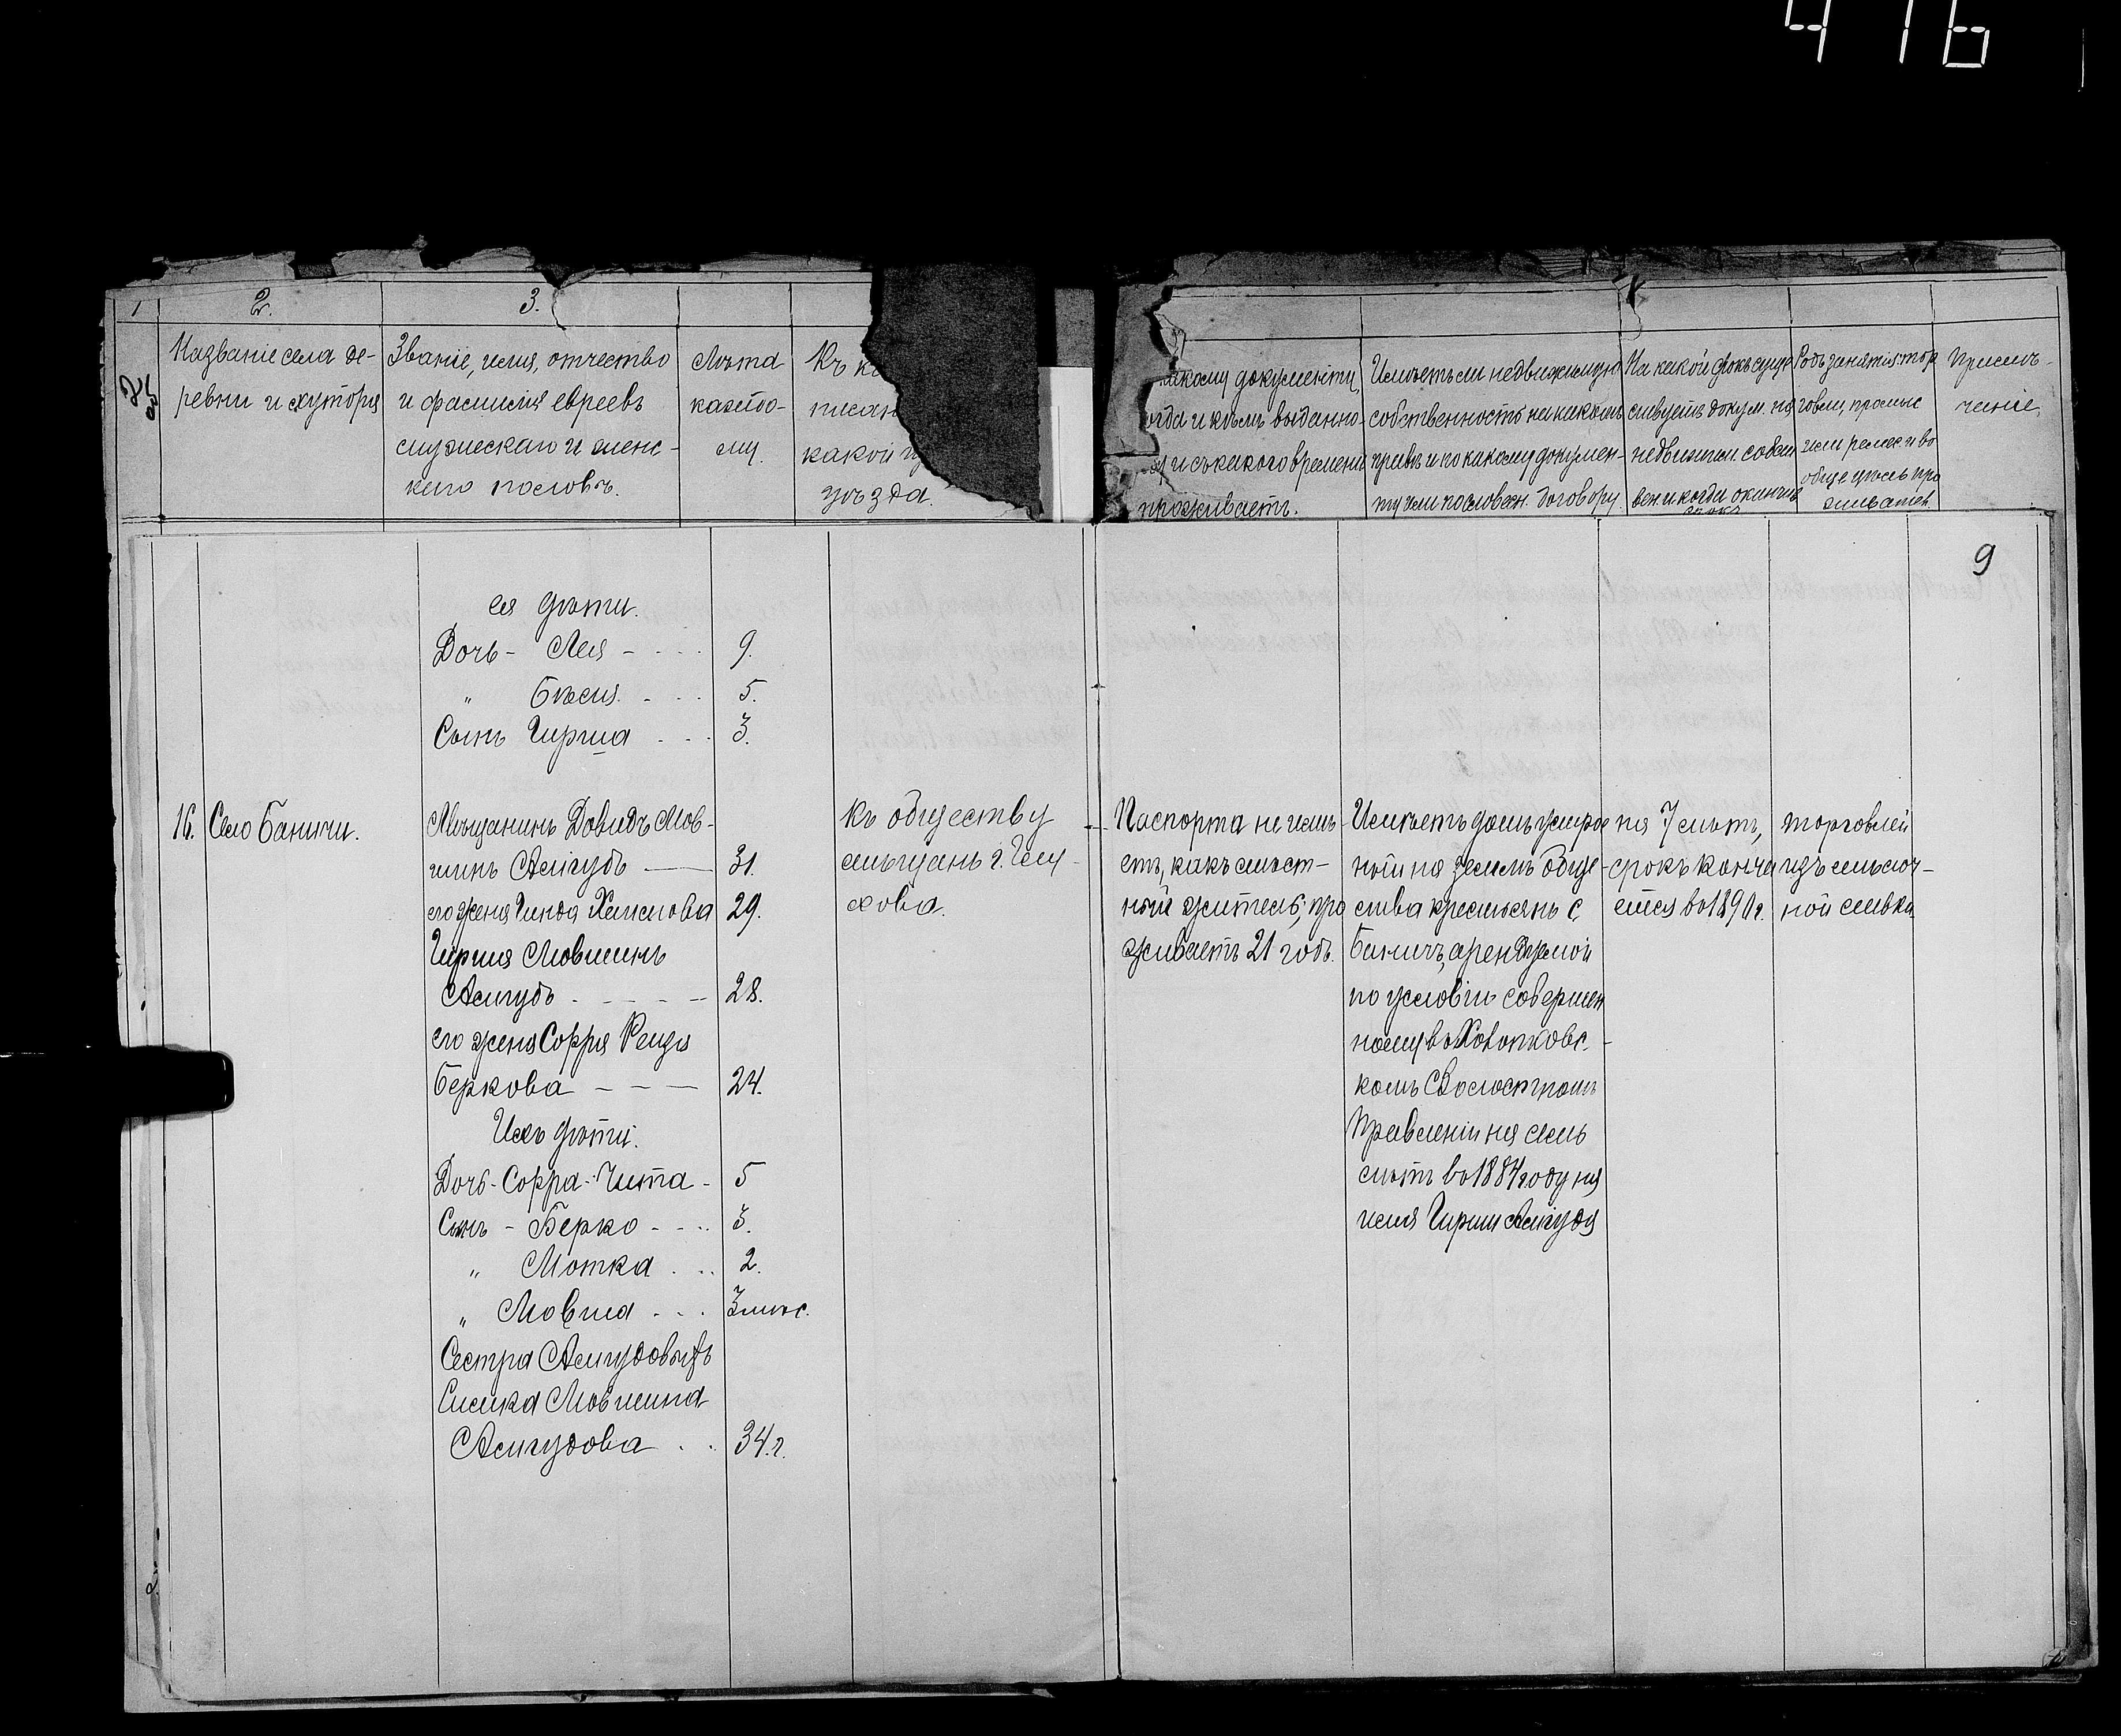 416
1
2.
3.
№
Названіе села де-
ревни и хутора
Званіе, имя, отчество
и фамилія евреевъ
мужескаго и женс-
каго половъ.
Лѣта
каждо-
му.
Къ
писан
какой
уѣзда.
какому документу,
когда и кѣмъ выданно-
и съ какого времени
проживаетъ.
Имѣетъ ли недвижимую
собственность на какомъ
правѣ и по какому докумен-
ту или словесн. договору
На какой срокъ сущe
ствуетъ докум. на
недвижим. собст
вен. и когда окончит
срокъ
Родъ занятія тор
говли, промыс
или ремес. и во
обще цѣль про
живател.
Примѣ-
чаніе.
9
ея дѣти.
Дочь - Лея - - - - 9.
" Бѣся. - - - 5.
Сынъ Гирша - - - 3.
16. Село Баничи.
Мѣщанинъ Довидъ Мов-
шинъ Амгудъ —— 31.
его жена Гинда Хаимова 29.
Гирша Мовшинъ
Амгудъ - - - - - 28.
его жена Сорра Рейза
Беркова - - - 24.
Ихъ дѣти.
Дочь - Сорра - Гита - 5
Сынъ - Берко - - - 3.
" Мотка - - - 2.
" Мовша - - - 3 мѣс.
Сестра Амгудовыхъ
Симка Мовшина
Амгудова - - 34.г.
къ обществу
мѣщанъ г. Глу-
хова.
Паспорта не имѣ-
етъ, какъ мѣст-
ный житель, про
живаетъ 21 годъ.
Имѣетъ домъ устрое
ный на землѣ обще-
ства крестьянъ с.
Баничъ, арендуемой
по условію совершен
ному въ Холопковс-
комъ Волостномъ
Правленіи на семь
лѣтъ въ 1884 году на
имя Гирши Амгуда
на 7 лѣтъ,
срокъ конча
ется въ 1890 г.
торговлей
изъ мѣлоч-
ной лавки